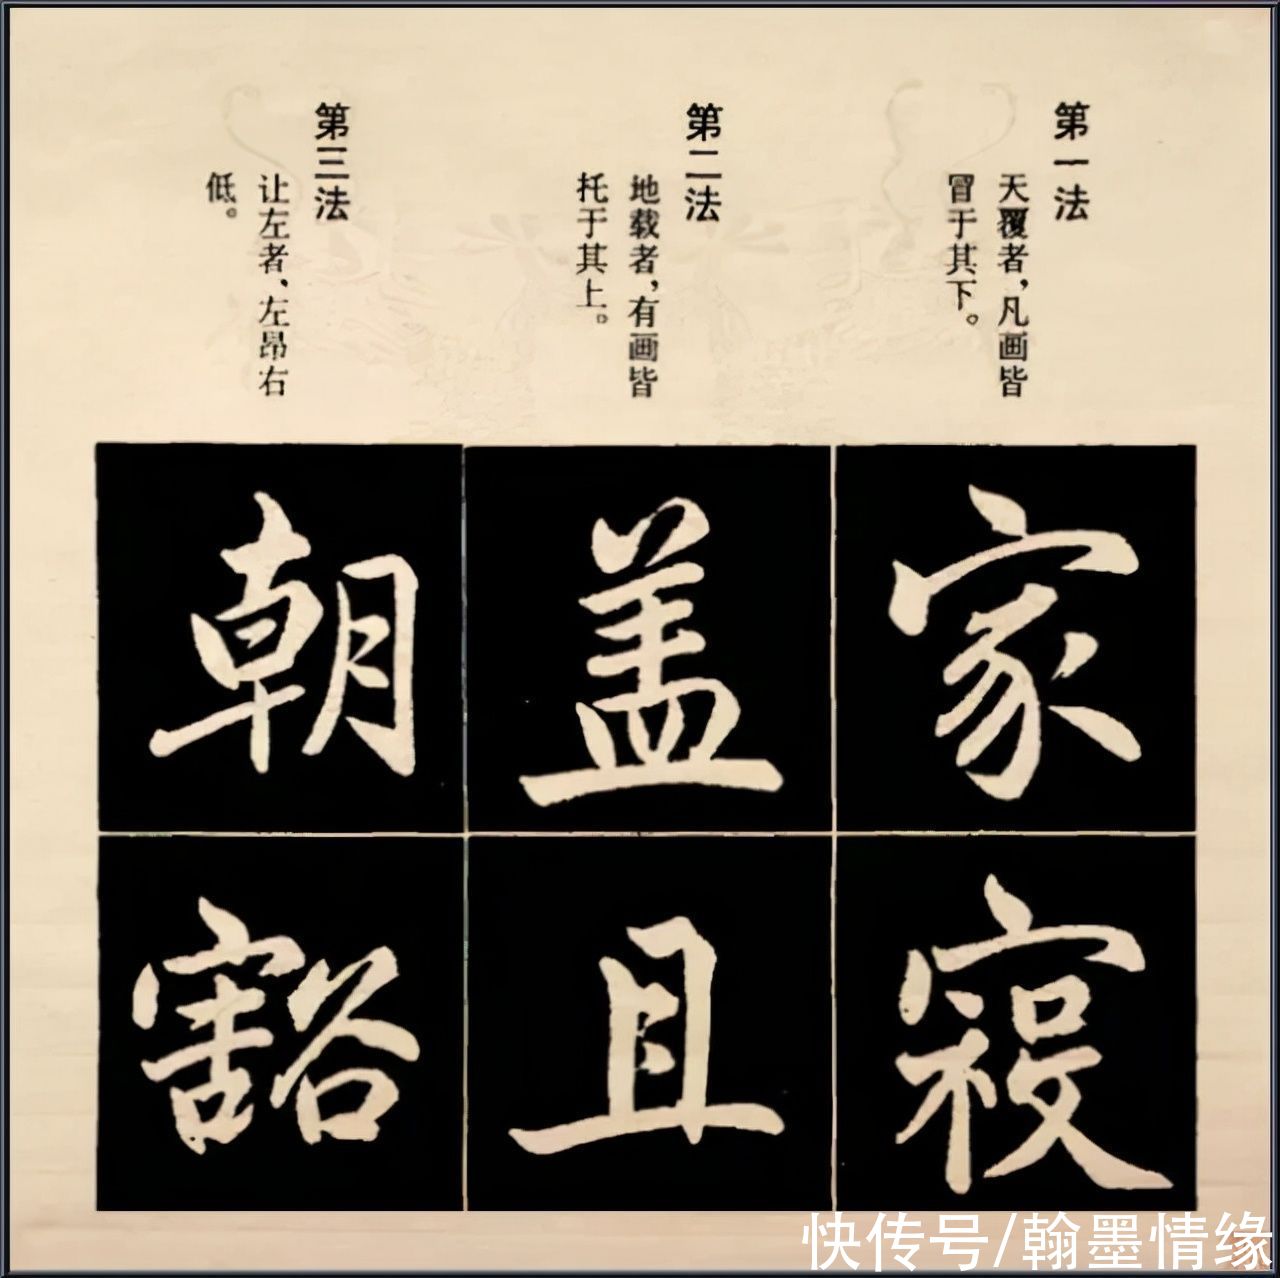 第一法
天覆者，凡画皆
冒于其下。
第二法
地载者，有画皆
托于其上。
第三法
让左者、左昂右
低。
家
寝
盖
且
朝
豁
快传号/翰墨情缘